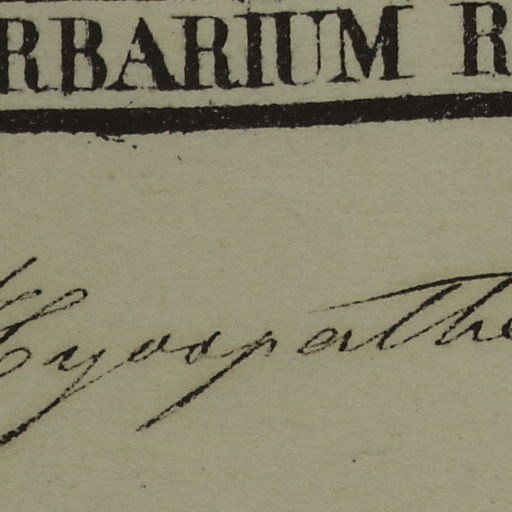 RBARIUM R
Hyospathe